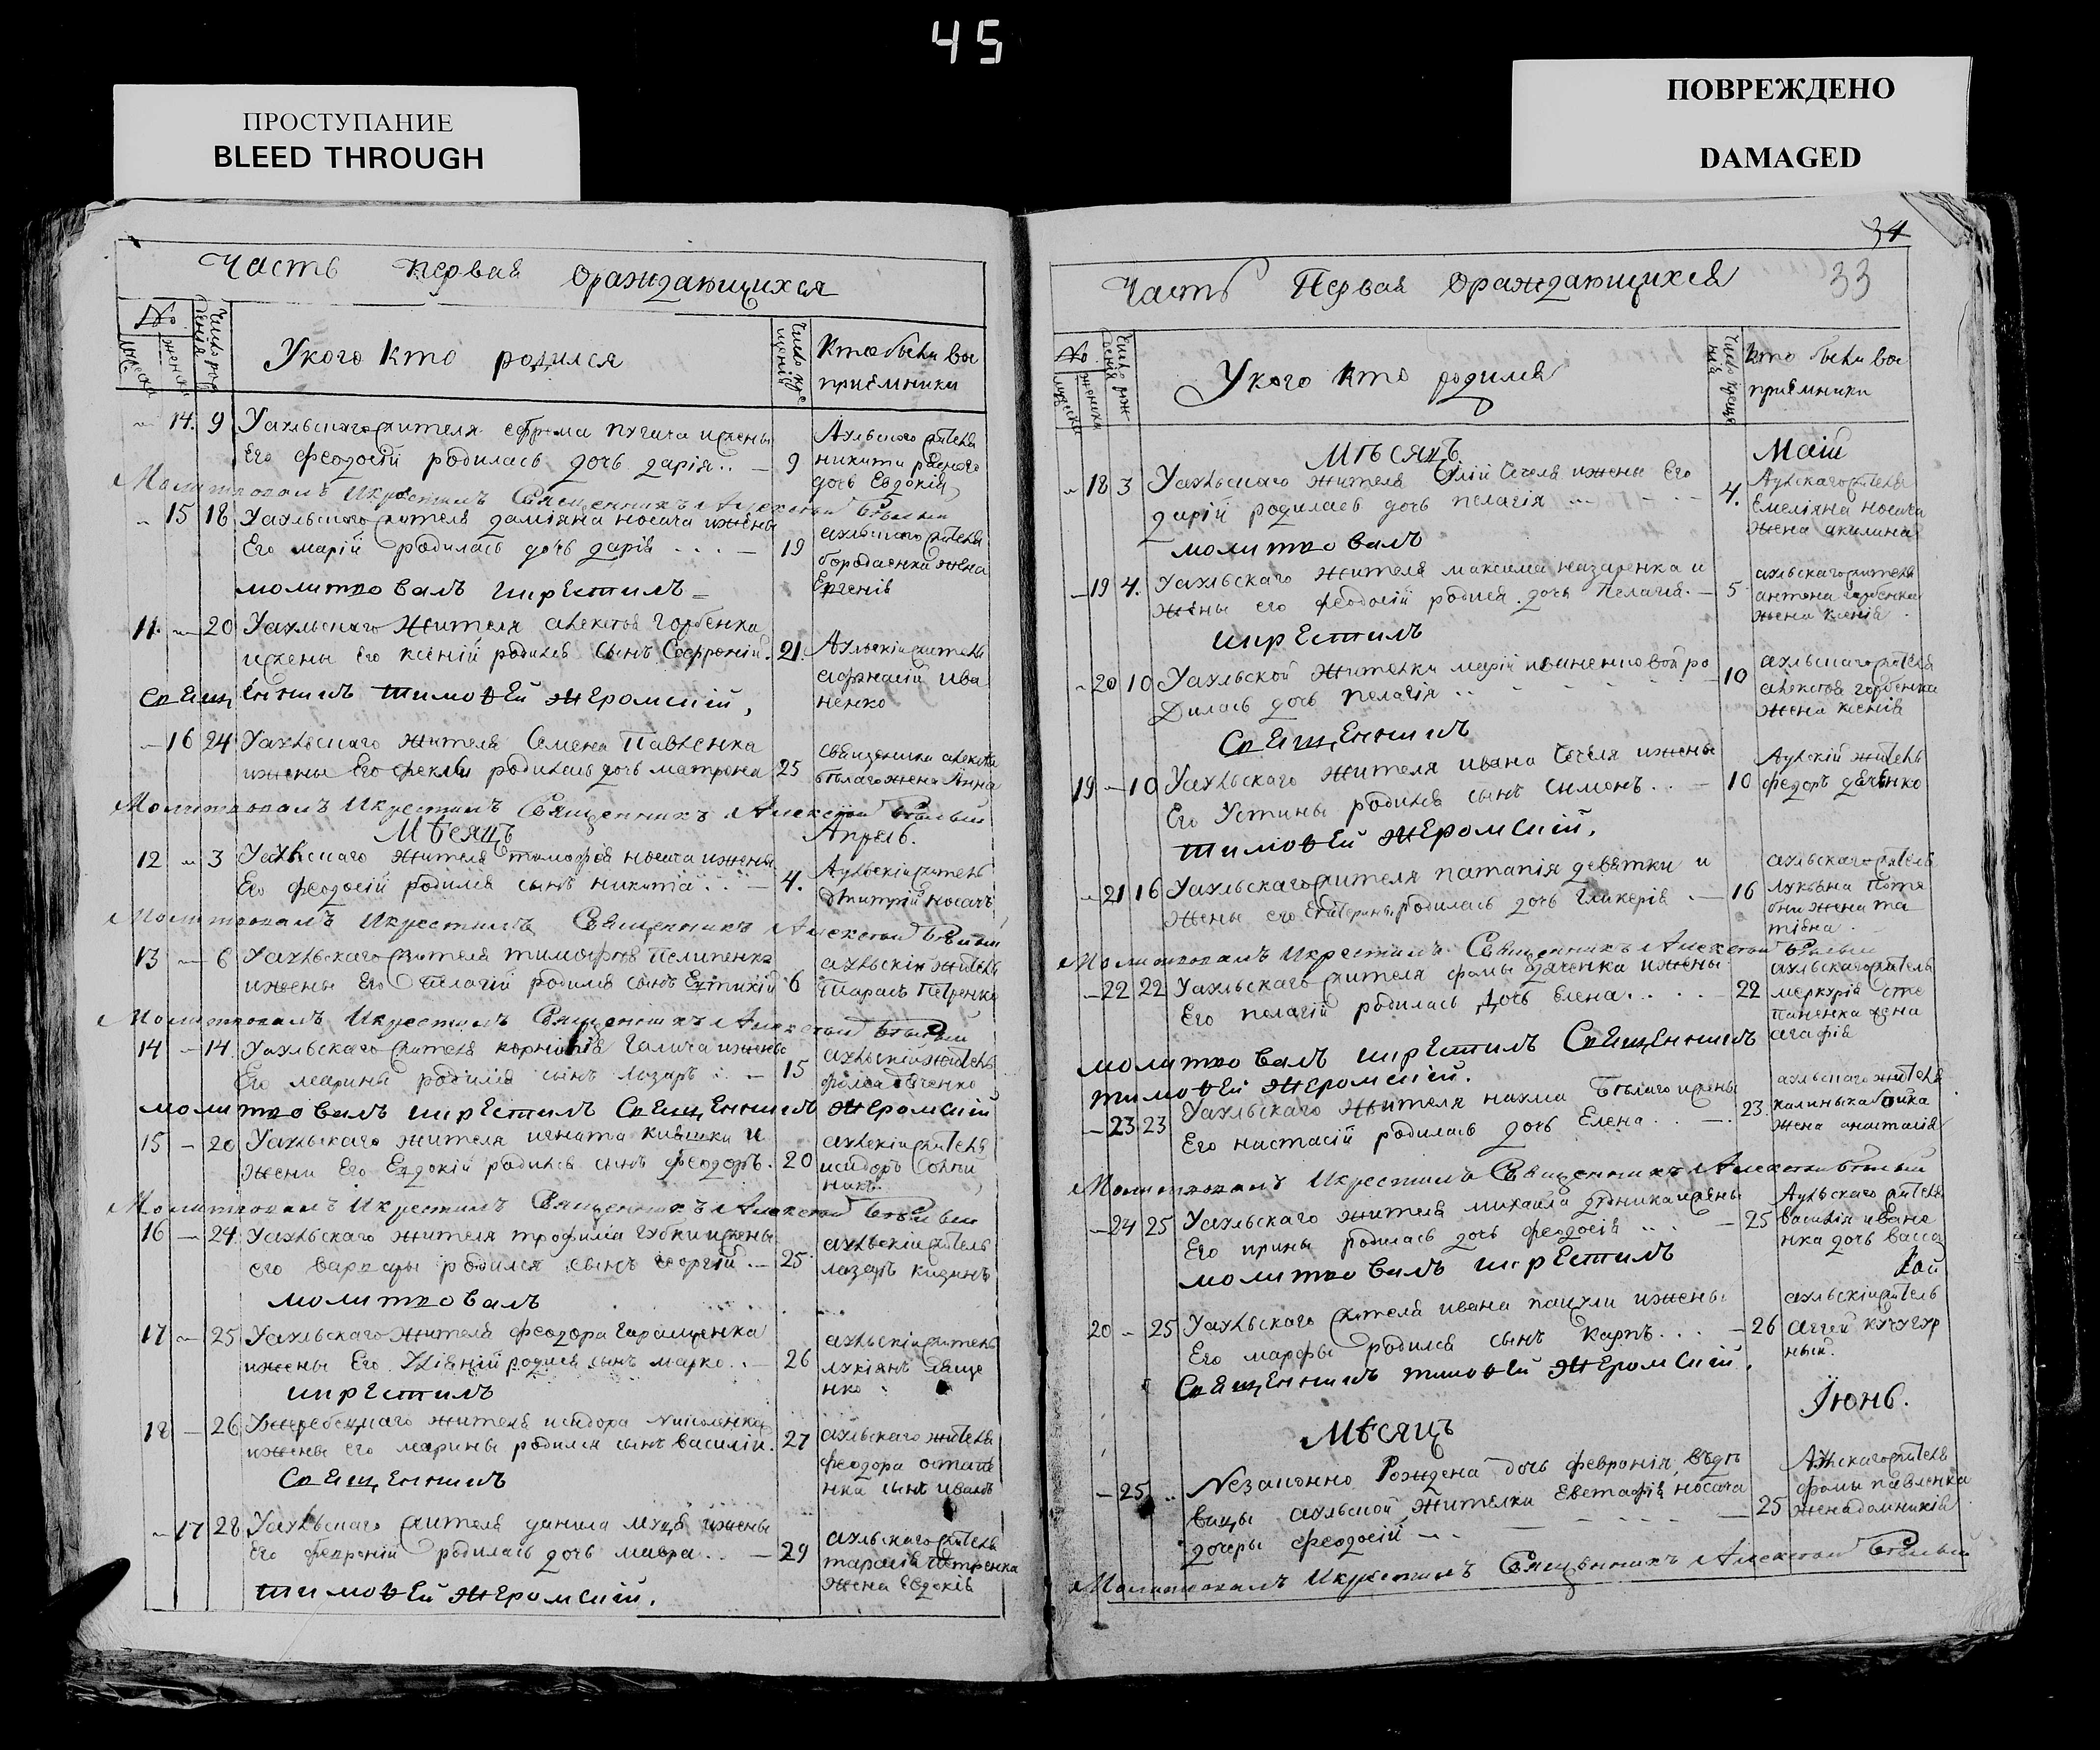 45
ПРОСТУПАНИЕ
BLEED THROUGH
ПОВРЕЖДЕНО
DAMAGED
Часть первая ораждающихся
No.
Укого кто родился
Кто были вос
приемники
14. 9 Уахльскаго жителя ефрема пугача ижены
Ахльскаго жителя
Его феодосій родилась дочь дарія .. — 9
никити
дочь Евдокія
Молитвовалъ Икрестилъ Священникъ Алексѣй Бѣлый
15 18 Уахльскаго жителя даміяна носача ижены
Его марій родилась дочь дарія . . . — 19
ахльскаго жителя
бородаенка жена
Евгенія
молитвовалъ икрестилъ
11. — 20 Уахльскаго жителя алексѣя горбенка
ижены его ксеній родился сынъ Софроній. 21.
Ахльскій житель
афанасій ива
ненко
Священникъ тимоѳей жеромскій,
— 16 24 Уахльскаго жителя Семена Павленка
ижены Его феклы родилась дочь матрона 25
священника алексѣя
бѣлаго жена Анна
Молитвовалъ Икрестилъ Священникъ Алексѣй Бѣлый
Мѣсяцъ Апрель.
12 — 3 Уахльскаго жителя тимофея носача ижены
Его феодосій родился сынъ никита . . — 4.
Ахльскій житель
дмитрій носачъ
Молитвовалъ Икрестилъ Священникъ Алексѣй Бѣлый
13 — 6 Уахльскаго жителя тимофея Пелипенка
ижены Его Пелагій родился сынъ Евтихій 6
ахльскій житель
Тарасъ Петренко
Молитвовалъ Икрестилъ Священникъ Алексѣй Бѣлый
14 — 14. Уахльскаго жителя корнилія Галича ижены
Его марины родился сынъ лазарь . . — 15
ахльскій житель
фома дяченко
молитвовалъ икрестилъ Священникъ жеромскій
15 — 20 Уахльскаго жителя игната кившика и
жени Его Евдокій родился сынъ феодоръ. 20
ахльскій житель
исидоръ
никъ
Молитвовалъ Икрестилъ Священникъ Алексѣй Бѣлый
16 — 24 Уахльскаго жителя трофима губки ижены
его варвары родился сынъ георгій. — 25
ахльскій житель
лазарь
молитвовалъ
17 — 25 Уахльскаго жителя феодора Гаращенка
ижены Его родился сынъ марко . . — 26
ахльскій житель
лукіянъ
нко
икрестилъ
18 — 26 жителя исидора николенка
ижены его марины родился сынъ василій. 27
ахльскаго жителя
феодора остапе
нка сынъ иванъ
Священникъ
— 17 28 Уахльскаго жителя данила ижены
Его февроній родилась дочь мавра . . — 29
ахльскаго жителя
тарасія Петренка
жена Евдокія
тимоѳей жеромскій.
34
33
Часть Первая ораждающихся
No.
Укого кто родился
Кто были вос
приемники
Мѣсяцъ Маій
— 18 3 Уахльскаго жителя ижены Его
дарій родилась дочь пелагія . . . 4.
Ахльскаго жителя
Емеліяна носача
жена акилина
молитвовалъ
— 19 4. Уахльскаго жителя максима назаренка и
жены его феодосій родися дочь Пелагія. — 5
ахльскаго жителя
антона горбенка
жена ксенія
икрестилъ
— 20 10 Уахльской жителки марій иваненковой ро
дилась дочь пелагія . . . 10
ахльскаго жителя
алексѣя горбенка
жена ксенія
Священникъ
19 — 10 Уахльскаго жителя ивана ижены
Его Устины родился сынъ симонъ. . — 10
Ахлскій житель
федоръ даченко
тимоѳей жеромскій.
— 21 16 Уахльскаго жителя патапія девятки и
жены его Екатерины родилась дочь гликерія . — 16
ахльскаго жителя
лукьяна
жена та
тіяна.
Молитвовалъ Икрестилъ Священникъ Алексѣй Бѣлый
— 22 22 Уахльскаго жителя фомы даченка ижены
Его пелагій родилась дочь Елена. . . . — 22
ахльскаго жителя
меркурія сте
паненка жена
агафія
молитвовалъ икрестилъ Священникъ
тимоѳей жеромскій.
— 23 23 Уахльскаго жителя наума Бѣлаго ижены
Его настасій родилась дочь Елена . . — 23
ахльскаго жителя
жена анастасія
Молитвовалъ Икрестилъ Священникъ Алексѣй Бѣлый
— 24 25 Уахльскаго жителя михаила рудника ижены
Его ирины родилась дочь феодосія . . . — 25
Ахльскаго жителя
василія иване
нка дочь васса
молитвовалъ икрестилъ
20 — 25 Уахльскаго жителя ивана пацули ижены
Его марфы родился сынъ карпъ. . . — 26
ахльскій житель
аггей кучугур
ный.
Священникъ тимоѳей жеромскій.
Мѣсяцъ Іюнь.
— 25 .. Незаконно Рождена дочь февронія, вѣдо
вицы ахльской жителки Евстафія носача
дочеры феодосій — . . — 25
Ахльскаго жителя
фомы павленка
жена домникія
Молитвовалъ Икрестилъ Священникъ Алексѣй Бѣлый